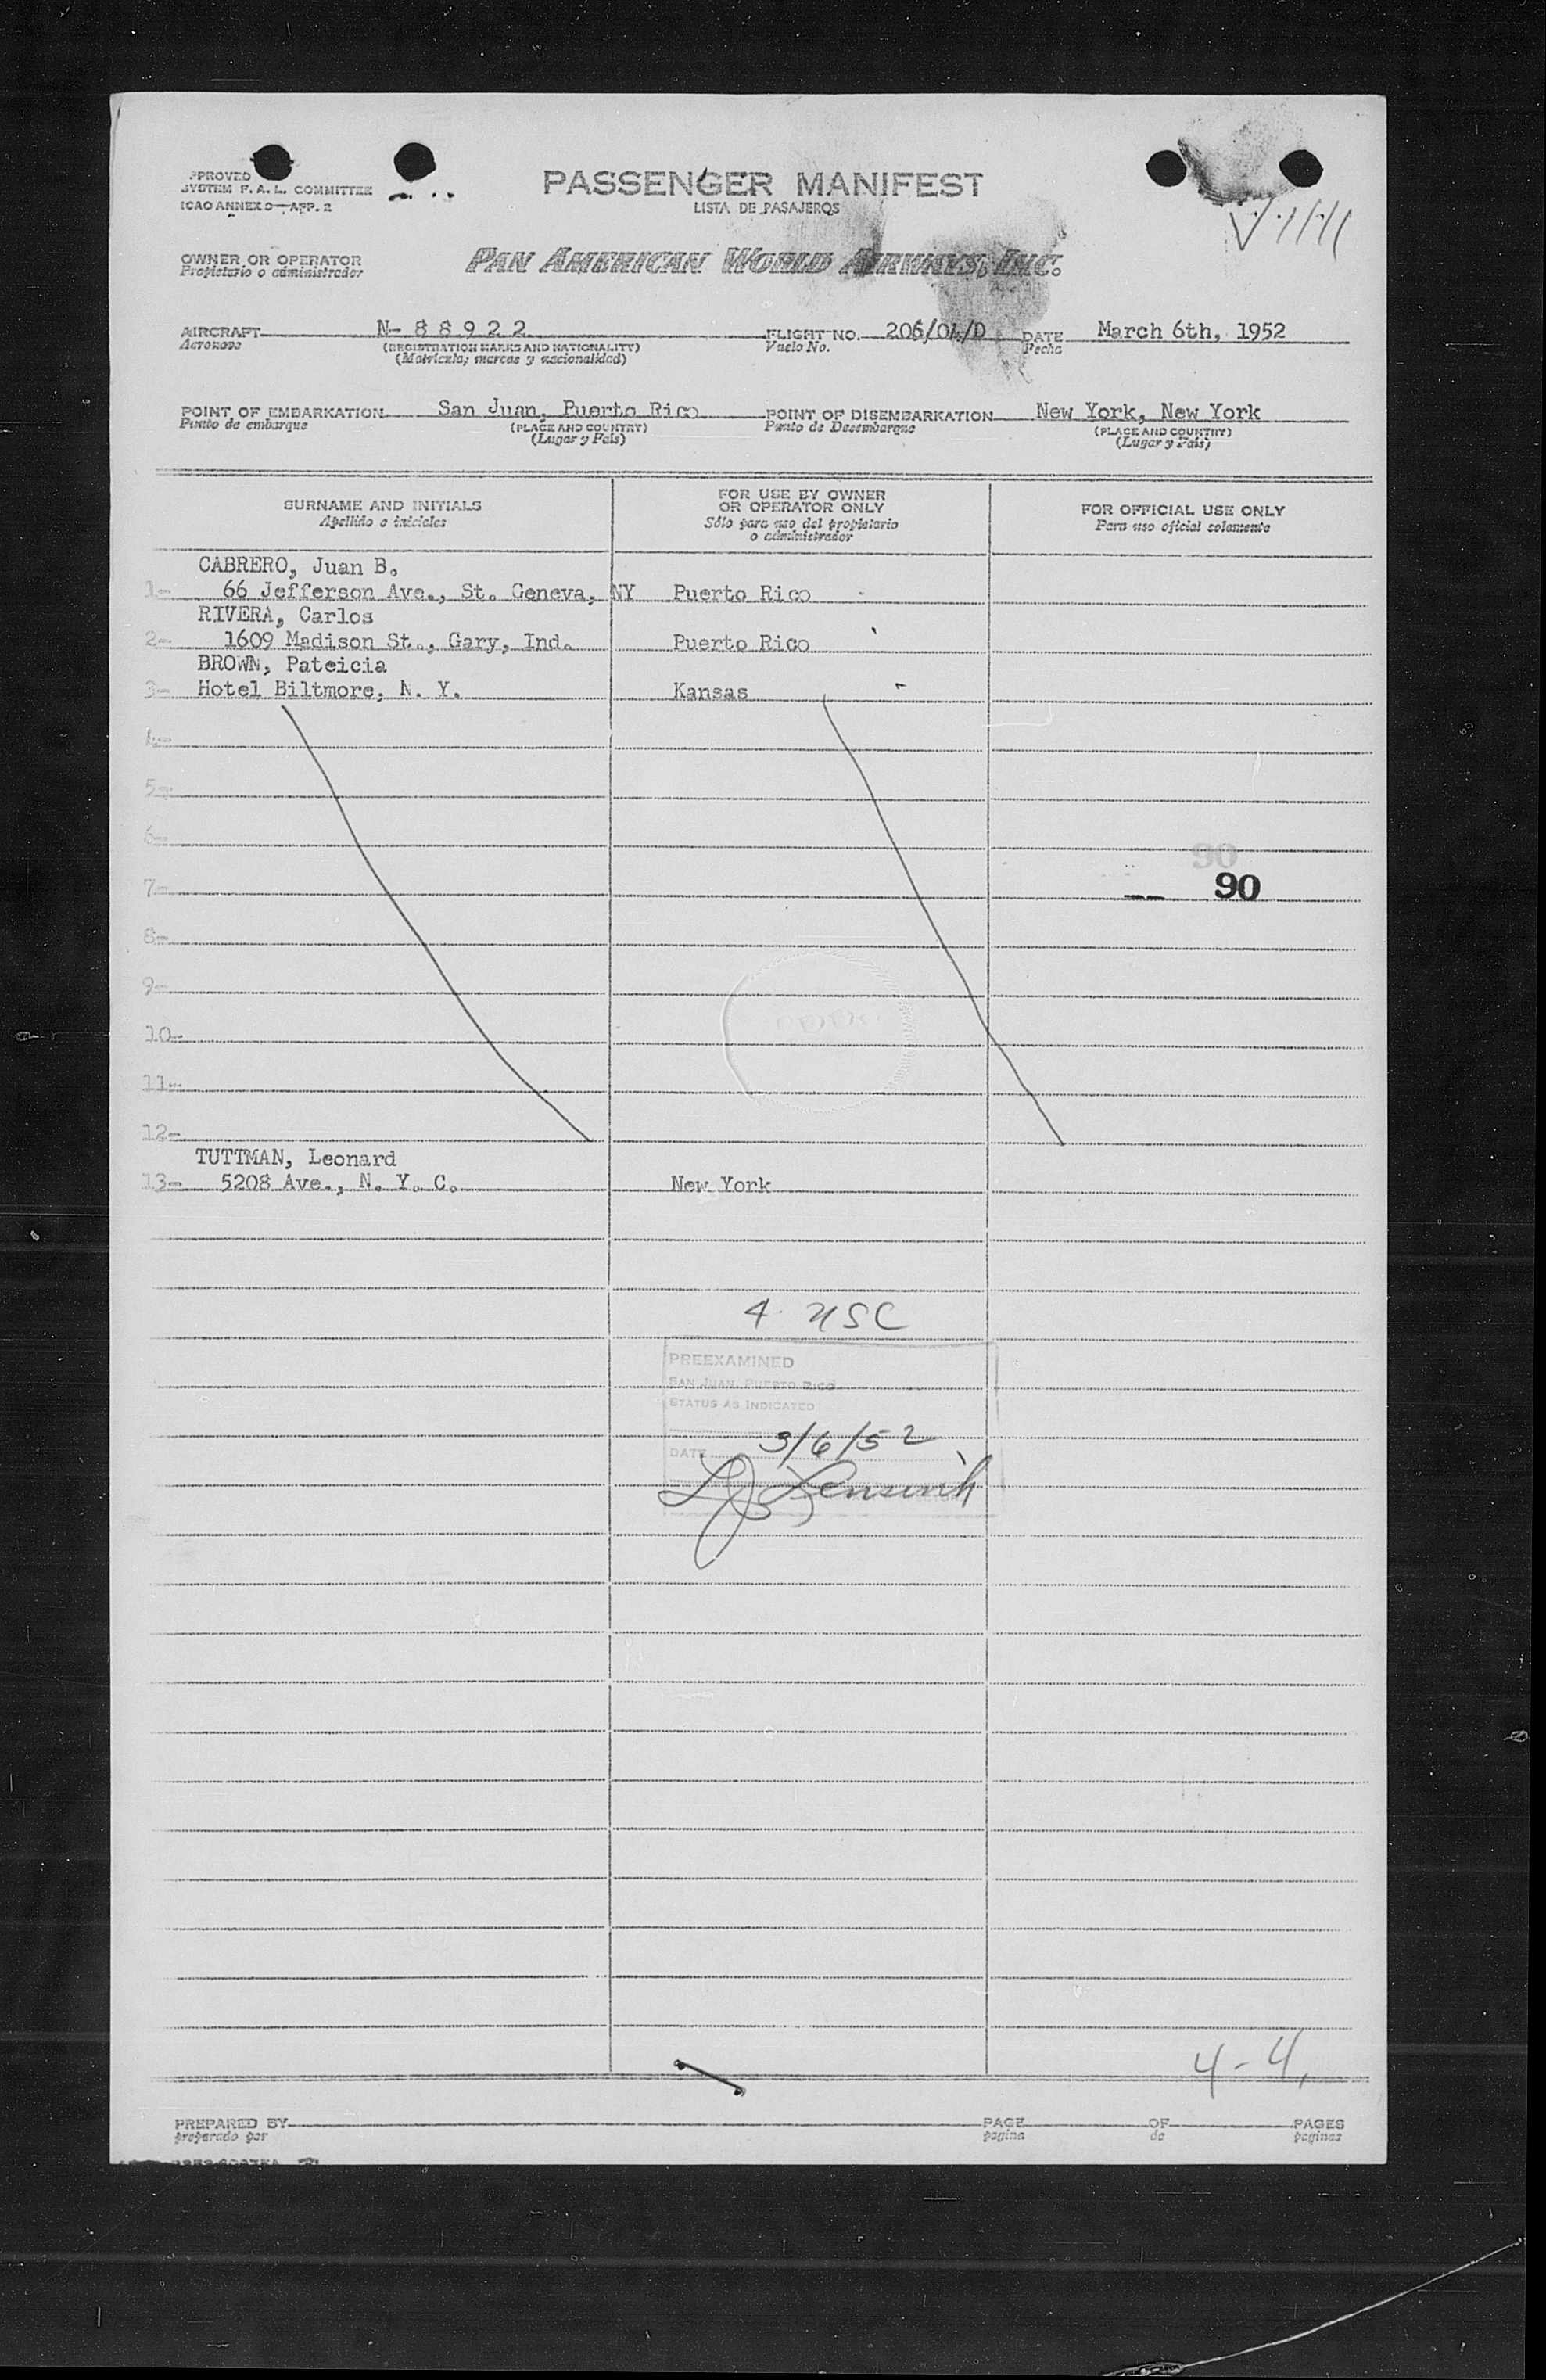 APPROVED
SYSTEM F. A. L. COMMITTEE
ICAO ANNEX 9—APP. 2
PASSENGER MANIFEST
LISTA DE PASAJEROS
OWNER OR OPERATOR
Propietario o administrador
PAN AMERICAN WORLD AIRWAYS, INC.
AIRCRAFT N- 8 8 9 2 2 FLIGHT NO. 206/04/D DATE March 6th, 1952
Aeronave (REGISTRATION MARKS AND NATIONALITY) Vuelo No. Fecha
(Matrícula; marcas y nacionalidad)
POINT OF EMBARKATION San Juan, Puerto Rico POINT OF DISEMBARKATION New York, New York
Punto de embarque (PLACE AND COUNTRY) Punto de Desembarque (PLACE AND COUNTRY)
(Lugar y País) (Lugar y País)
SURNAME AND INITIALS
Apellido e iniciales
FOR USE BY OWNER
OR OPERATOR ONLY
Sólo para uso del propietario
o administrador
FOR OFFICIAL USE ONLY
Para uso oficial solamente
CABRERO, Juan B.
1- 66 Jefferson Ave., St. Geneva, NY Puerto Rico
RIVERA, Carlos
2- 1609 Madison St., Gary, Ind. Puerto Rico
BROWN, Pateicia
3- Hotel Biltmore, N. Y. Kansas
4-
5-
6-
90
7- 90
8-
9-
10-
11-
12-
TUTTMAN, Leonard
13- 5208 Ave., N. Y. C. New York
4. USC
PREEXAMINED
SAN JUAN, PUERTO RICO
STATUS AS INDICATED
DATE 3/6/52
4-4,
PREPARED BY PAGE OF PAGES
preparado por pagina de paginas